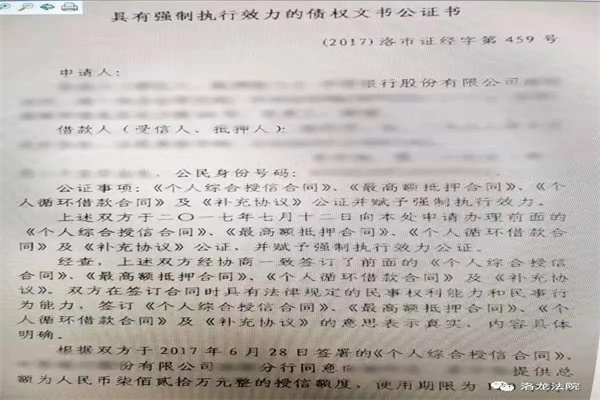 具有强制执行效力的债权文书公证书
(2017)洛市证经字第 459 号
申请人:
银行股份有限公司
借款人(受信人、抵押人):
公民身份号码:
公证事项:《个人综合授信合同》、《最高额抵押合同》、《个
人循环借款合同》及《补充协议》公证并赋予强制执行效力。
上述双方于二〇一七年七月十二日向本处申请办理前面的
《个人综合授信合同》、《最高额抵押合同》、《个人循环借款合
同》及《补充协议》公证，并赋予强制执行效力公证。
经查，上述双方经协商一致签订了前面的《个人综合授信
合同》、《最高额抵押合同》、《个人循环借款合同》及《补充协
议》。双方在签订合同时具有法律规定的民事权利能力和民事行
为能力，签订《个人综合授信合同》、《最高额抵押合同》、《个
人循环借款合同》及《补充协议》的意思表示真实、内容具体
明确。
根据双方于 2017 年 6 月 28 日签署的《个人综合授信合同》、
份有限公司 分行同意 提供总
额为人民币柒佰贰拾万元整的授信额度，使用期限为
洛龙法院